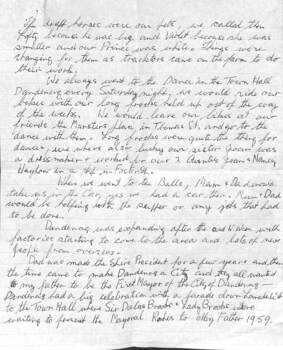 of draft horses were our pets, we called them
Fifty because he was big and Violet because she was
smaller and our Prince was white. Things were
changing for them as tractors came on the farm to do
their work.
We always went to the Dance in the Town Hall
Dandenong every Saturday night, we would ride our
bikes with our long frocks held up out of the way
of the wheels. We would leave our bikes at our
friends the place in Thomas St. and go to the
dance with them. Long frocks were quite the thing for
dances, we were also lucky our sister Joan was
a dressmaker & worked for our 2 Aunties Jean & Nancy
in
When we went to the Balls, Mum & Dad would
take us in the car, yes we had a car then. Mum & Dad
would be helping with the supper or any jobs that had
to be done.
Dandenong was expanding after the end of War with
factories starting to come to the area and lots of new
people from overseas.
Dad was made the Shire President for a few years and then
the time came to make Dandenong a City and they all wanted
my father to be the First Mayor of the City of Dandenong —
Dandenong had a big celebration with a parade down Lonsdale St
to the Town Hall where Sir Dallas Brooks & Lady Brooks were
waiting to present the Mayoral Robes to my Father 1959.